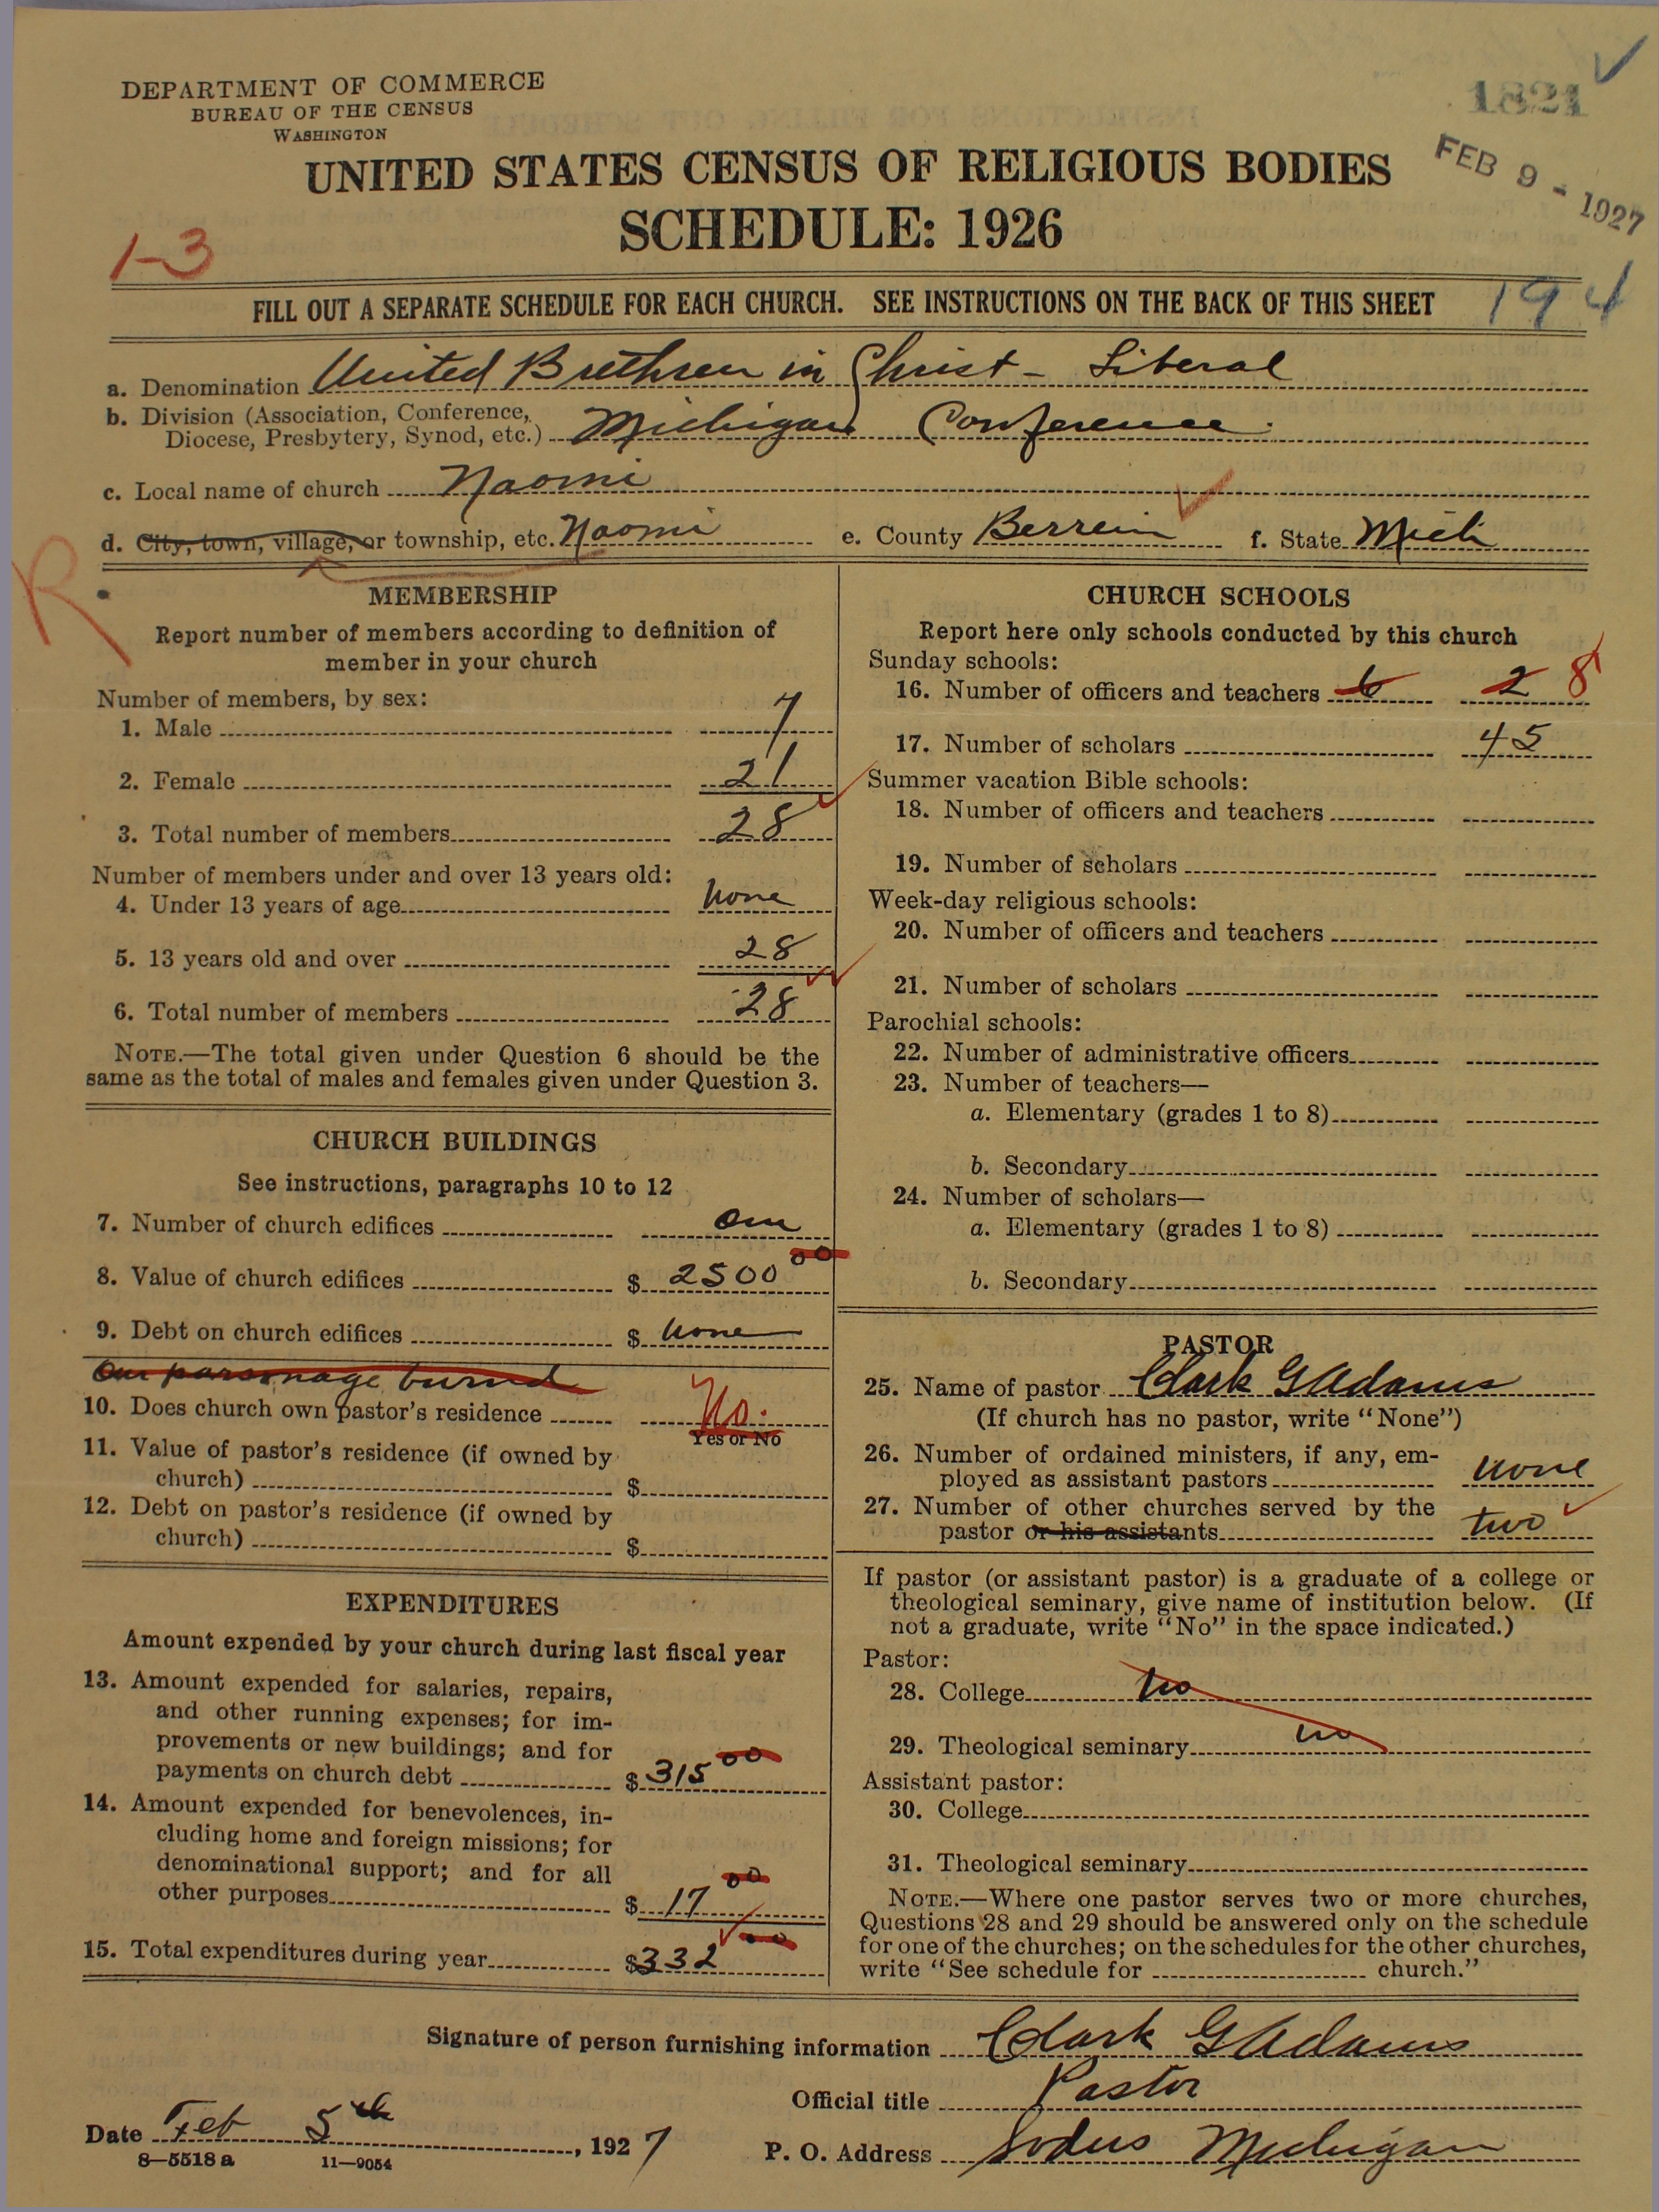 DEPARTMENT OF COMMERCE
BUREAU OF THE CENSUS
WASHINGTON
1821
FEB 9 - 1927
UNITED STATES CENSUS OF RELIGIOUS BODIES
SCHEDULE: 1926
1-3
FILL OUT A SEPARATE SCHEDULE FOR EACH CHURCH. SEE INSTRUCTIONS ON THE BACK OF THIS SHEET
194
a. Denomination United Brethren in Christ - Liberal
b. Division (Association, Conference, Diocese, Presbytery, Synod, etc.) Michigan Conference.
c. Local name of church Naomi
d. City, town, village, or township, etc. Naomi e. County Berrein f. State Mich
R
MEMBERSHIP
Report number of members according to definition of
member in your church
Number of members, by sex:
1. Male 7
2. Female 21
3. Total number of members 28
Number of members under and over 13 years old:
4. Under 13 years of age none
5. 13 years old and over 28
6. Total number of members 28
NOTE.—The total given under Question 6 should be the
same as the total of males and females given under Question 3.
CHURCH BUILDINGS
See instructions, paragraphs 10 to 12
7. Number of church edifices one
8. Value of church edifices $ 2500 00
9. Debt on church edifices $ none
Our parsonage burned
10. Does church own pastor's residence No.
Yes or No
11. Value of pastor's residence (if owned by
church) $
12. Debt on pastor's residence (if owned by
church) $
EXPENDITURES
Amount expended by your church during last fiscal year
13. Amount expended for salaries, repairs,
and other running expenses; for im-
provements or new buildings; and for
payments on church debt $ 315 00
14. Amount expended for benevolences, in-
cluding home and foreign missions; for
denominational support; and for all
other purposes $ 17 00
15. Total expenditures during year $ 332 00
CHURCH SCHOOLS
Report here only schools conducted by this church
Sunday schools:
16. Number of officers and teachers 6 2 8
17. Number of scholars 45
Summer vacation Bible schools:
18. Number of officers and teachers
19. Number of scholars
Week-day religious schools:
20. Number of officers and teachers
21. Number of scholars
Parochial schools:
22. Number of administrative officers
23. Number of teachers—
a. Elementary (grades 1 to 8)
b. Secondary
24. Number of scholars—
a. Elementary (grades 1 to 8)
b. Secondary
PASTOR
25. Name of pastor Clark G Adams
(If church has no pastor, write "None")
26. Number of ordained ministers, if any, em-
ployed as assistant pastors none
27. Number of other churches served by the
pastor or his assistants two
If pastor (or assistant pastor) is a graduate of a college or
theological seminary, give name of institution below. (If
not a graduate, write "No" in the space indicated.)
Pastor:
28. College no
29. Theological seminary no
Assistant pastor:
30. College
31. Theological seminary
NOTE.—Where one pastor serves two or more churches,
Questions 28 and 29 should be answered only on the schedule
for one of the churches; on the schedules for the other churches,
write "See schedule for church."
Signature of person furnishing information Clark G Adams
Official title Pastor
Date Feb 5th, 1927 P. O. Address Sodus Michigan
8—5518 a 11—9054